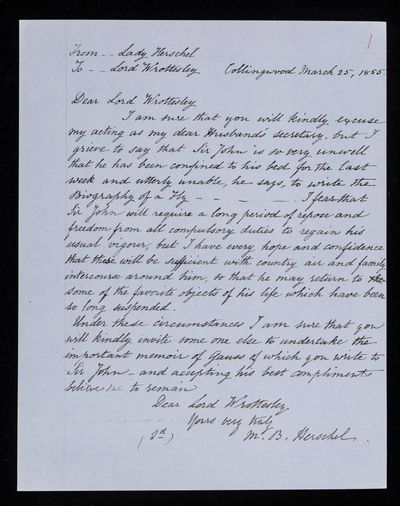 1
From -- Lady Herschel
To -- Lord Wrottesley. Collingwood March 25, 1855
Dear Lord Wrottesley
I am sure that you will kindly excuse
my acting as my dear Husbands secretary, but I
grieve to say that Sir John is so very unwell
that he has been confined to his bed for the last
week and utterly unable, he says, to write the
Biography of a Fly - - - - - I fear that
Sir John will require a long period of repose and
freedom from all compulsory duties to regain his
usual vigour, but I have every hope and confidence
that these will be sufficient with country air and family
intercourse around him, so that he may return to the
some of the favorite objects of his life which have been
so long suspended.
Under these circumstances I am sure that you
will kindly invite some one else to undertake the
important memoir of Gauss of which you write to
Sir John - and accepting his best compliments
believe me to remain
Dear Lord Wrottesley,
Yours very truly
(Sd) M. B. Herschel.